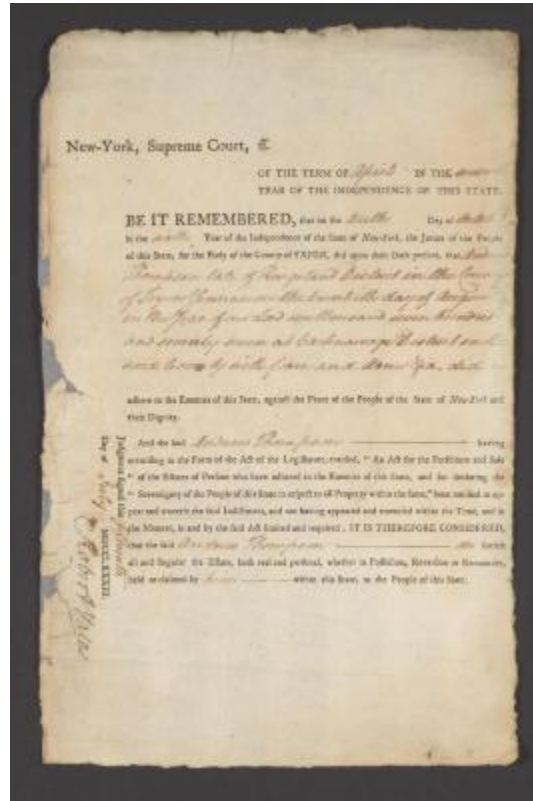 New-York, Supreme Court, &
OF THE TERM OF April IN THE
YEAR OF THE INDEPENDENCE OF THIS STATE.
BE IT REMEMBERED, that on the Day of
in the Year of the Independence of the State of New-York, the Jurors of the People
of this State, for the Body of the County of TRYON, did upon their Oath present, that
Thompson late of Kingsland District in the County
of Tryon on the twentieth day of
in the Year of our Lord one thousand seven hundred
and seventy seven at District and
County with force and Arms &c. did
adhere to the Enemies of this State, against the Peace of the People of the State of New-York and
their Dignity.
And the said Andrew Thompson having
according to the Form of the Act of the Legislature, entitled, “ An Act for the Forfeiture and Sale
“ of the Estates of Persons who have adhered to the Enemies of this State, and for declaring the
“ Sovereignty of the People of this State in respect to all Property within the same,” been notified to ap-
pear and traverse the said Indictment, and not having appeared and traversed within the Time, and in
the Manner, in and by the said Act limited and required ; IT IS THEREFORE CONSIDERED,
that the said Andrew Thompson do forfeit
all and Singular the Estate, both real and personal, whether in Possession, Reversion or Remainder,
held or claimed by him within this State, to the People of this State.
Judgment signed this
Day of July MDCCLXXXII.
Robert